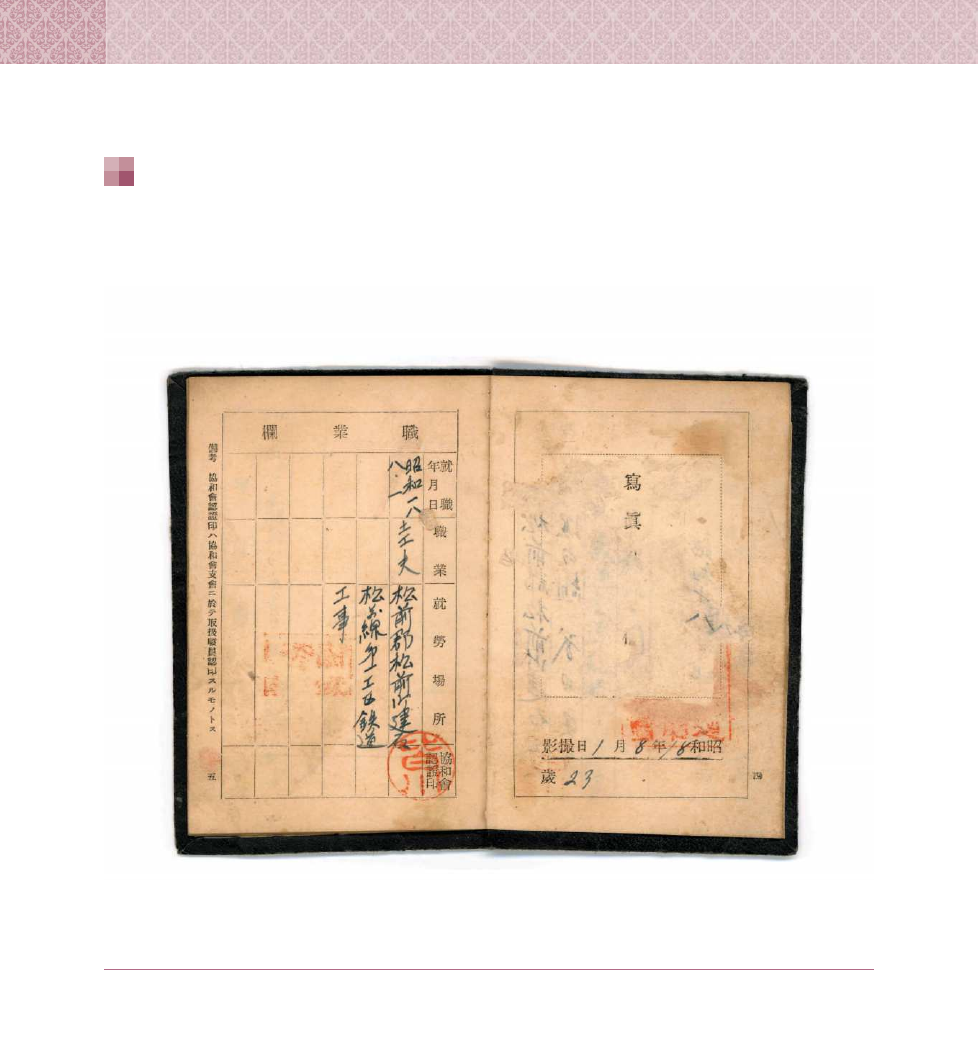 寫眞
昭和18年8月1日撮影
23歲
四
職業欄
就職年月日
昭和一八
八、一
職業
土工夫
就勞場所
松前郡松前町建石
工事
協和會認證印
備考 協和會認證印ハ協和會支會ニ於テ取扱職員認印スルモノトス
五